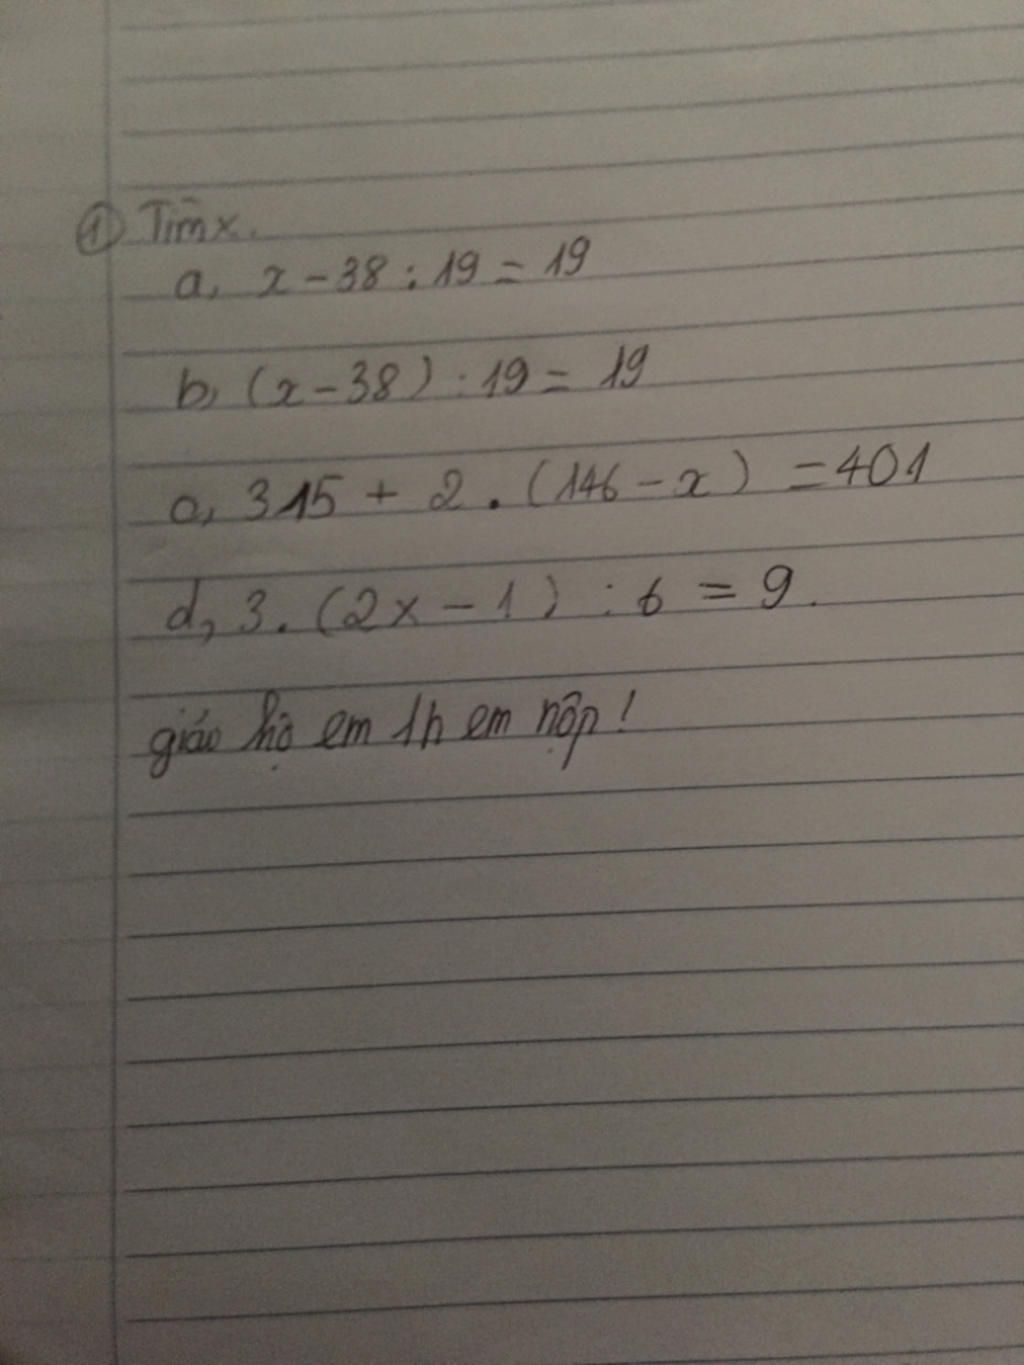 ① Tìm x.
a, x - 38 : 19 = 19
b, (x - 38) : 19 = 19
c, 315 + 2 . (146 - x) = 401
d, 3. (2x - 1) : 6 = 9.
giáo hộ em 1h em nộp!